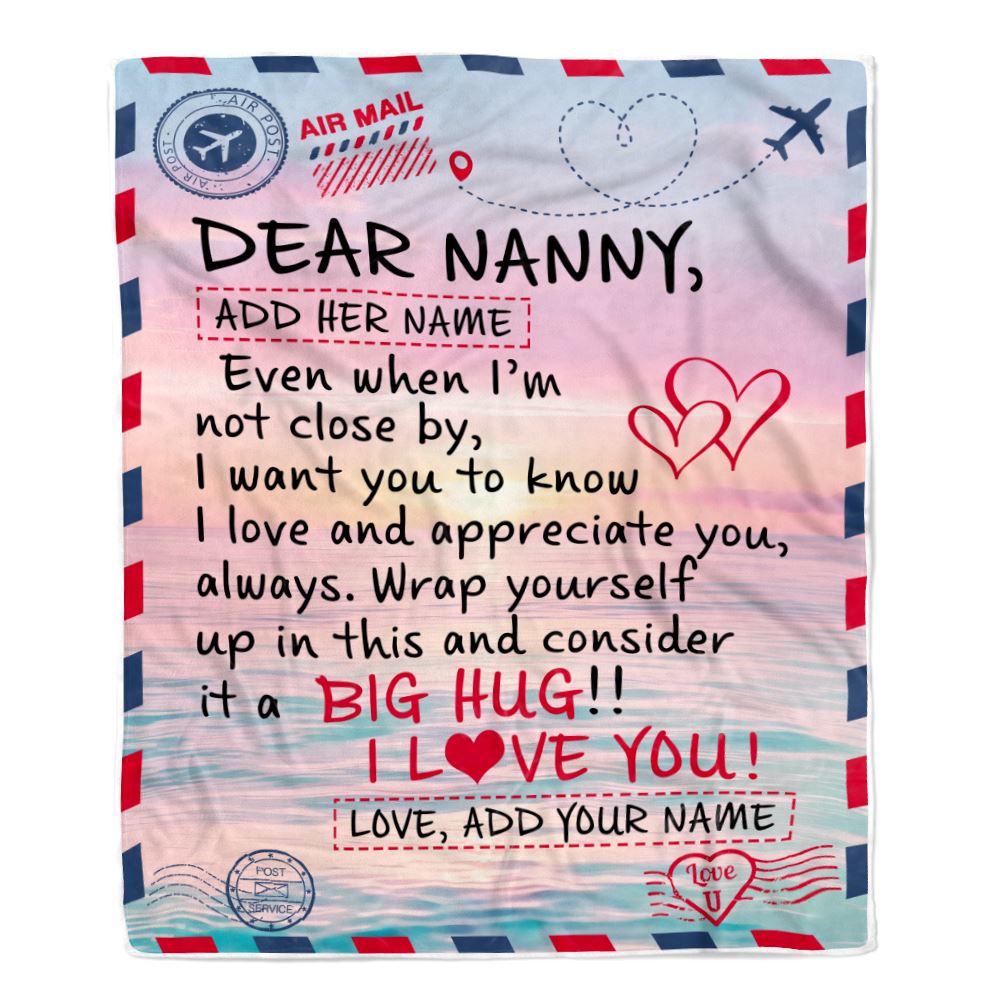 AIR POST
AIR POST
AIR POST
AIR MAIL
DEAR NANNY,
ADD HER NAME
Even when I'm
not close by,
I want you to know
I love and appreciate you,
always. Wrap yourself
up in this and consider
it a BIG HUG!!
I LOVE YOU!
LOVE, ADD YOUR NAME
POST
SERVICE
Love
U